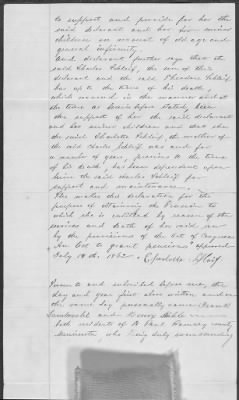 to support and provide for her the
said declarant and her two minor
children on account of old age and
general infirmity
And declarant further says that the
said Charles Schleif, the son of this
declarant and the said Theodore Schleif
has up to the time of his death,
which occurred in the manner and at
the time as herein before stated, been
the support of her the said declarant
and her minor children and that she
the said Charlotte Schleif the mother of
the said Charles Schleif was and for
a number of years previous to the time
of his death, has been dependent upon
him the said Charles Schleif for
support and maintenance.
She makes this declaration for the
purpose of obtaining the Pension to
which she is entitled by reason of the
services and death of her said son
by the provisions of the Act of Congress
"An Act to grant pensions" approved
July 14th 1862 Charlotte Schleif
Sworn to and subscribed before me, the
day and year first above written and on
the same day personally came
and Henry
both residents of St Paul Ramsey county
Minnesota, who being duly